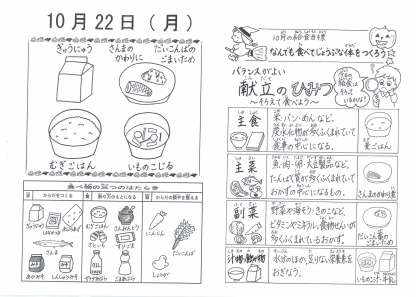 10月22日（月）
ぎゅうにゅう
さんまの
かわりに
だいこんばの
ごまいため
むぎごはん
いものこじる
食べ物の三つのはたらき
からだをつくる
ぎゅうにゅう
さんま
あぶらあげ
むぎごはん
さといも
だいこんば
にんじん
しょうが
10月の給食目標
なんでも食べてじょうぶな体をつくろう
バランスがよい
献立のひみつ
～そろえて食べよう～
主食
米・パン・めんなど。
炭水化物が多くふくまれていて
食事の中心になる。
麦ごはん
主菜
魚・肉・卵・大豆製品など。
たんぱく質が多くふくまれていて
おかずの中心になるもの。
さんまのかわり煮
副菜
野菜や海そう・きのこなど。
ビタミンやミネラル、食物せんいが
多くふくまれているおかず。
だいこん葉の
ごまいため
汁物・飲み物
水分のほか、足りない栄養素を
おぎなう。
いものこ汁・牛乳